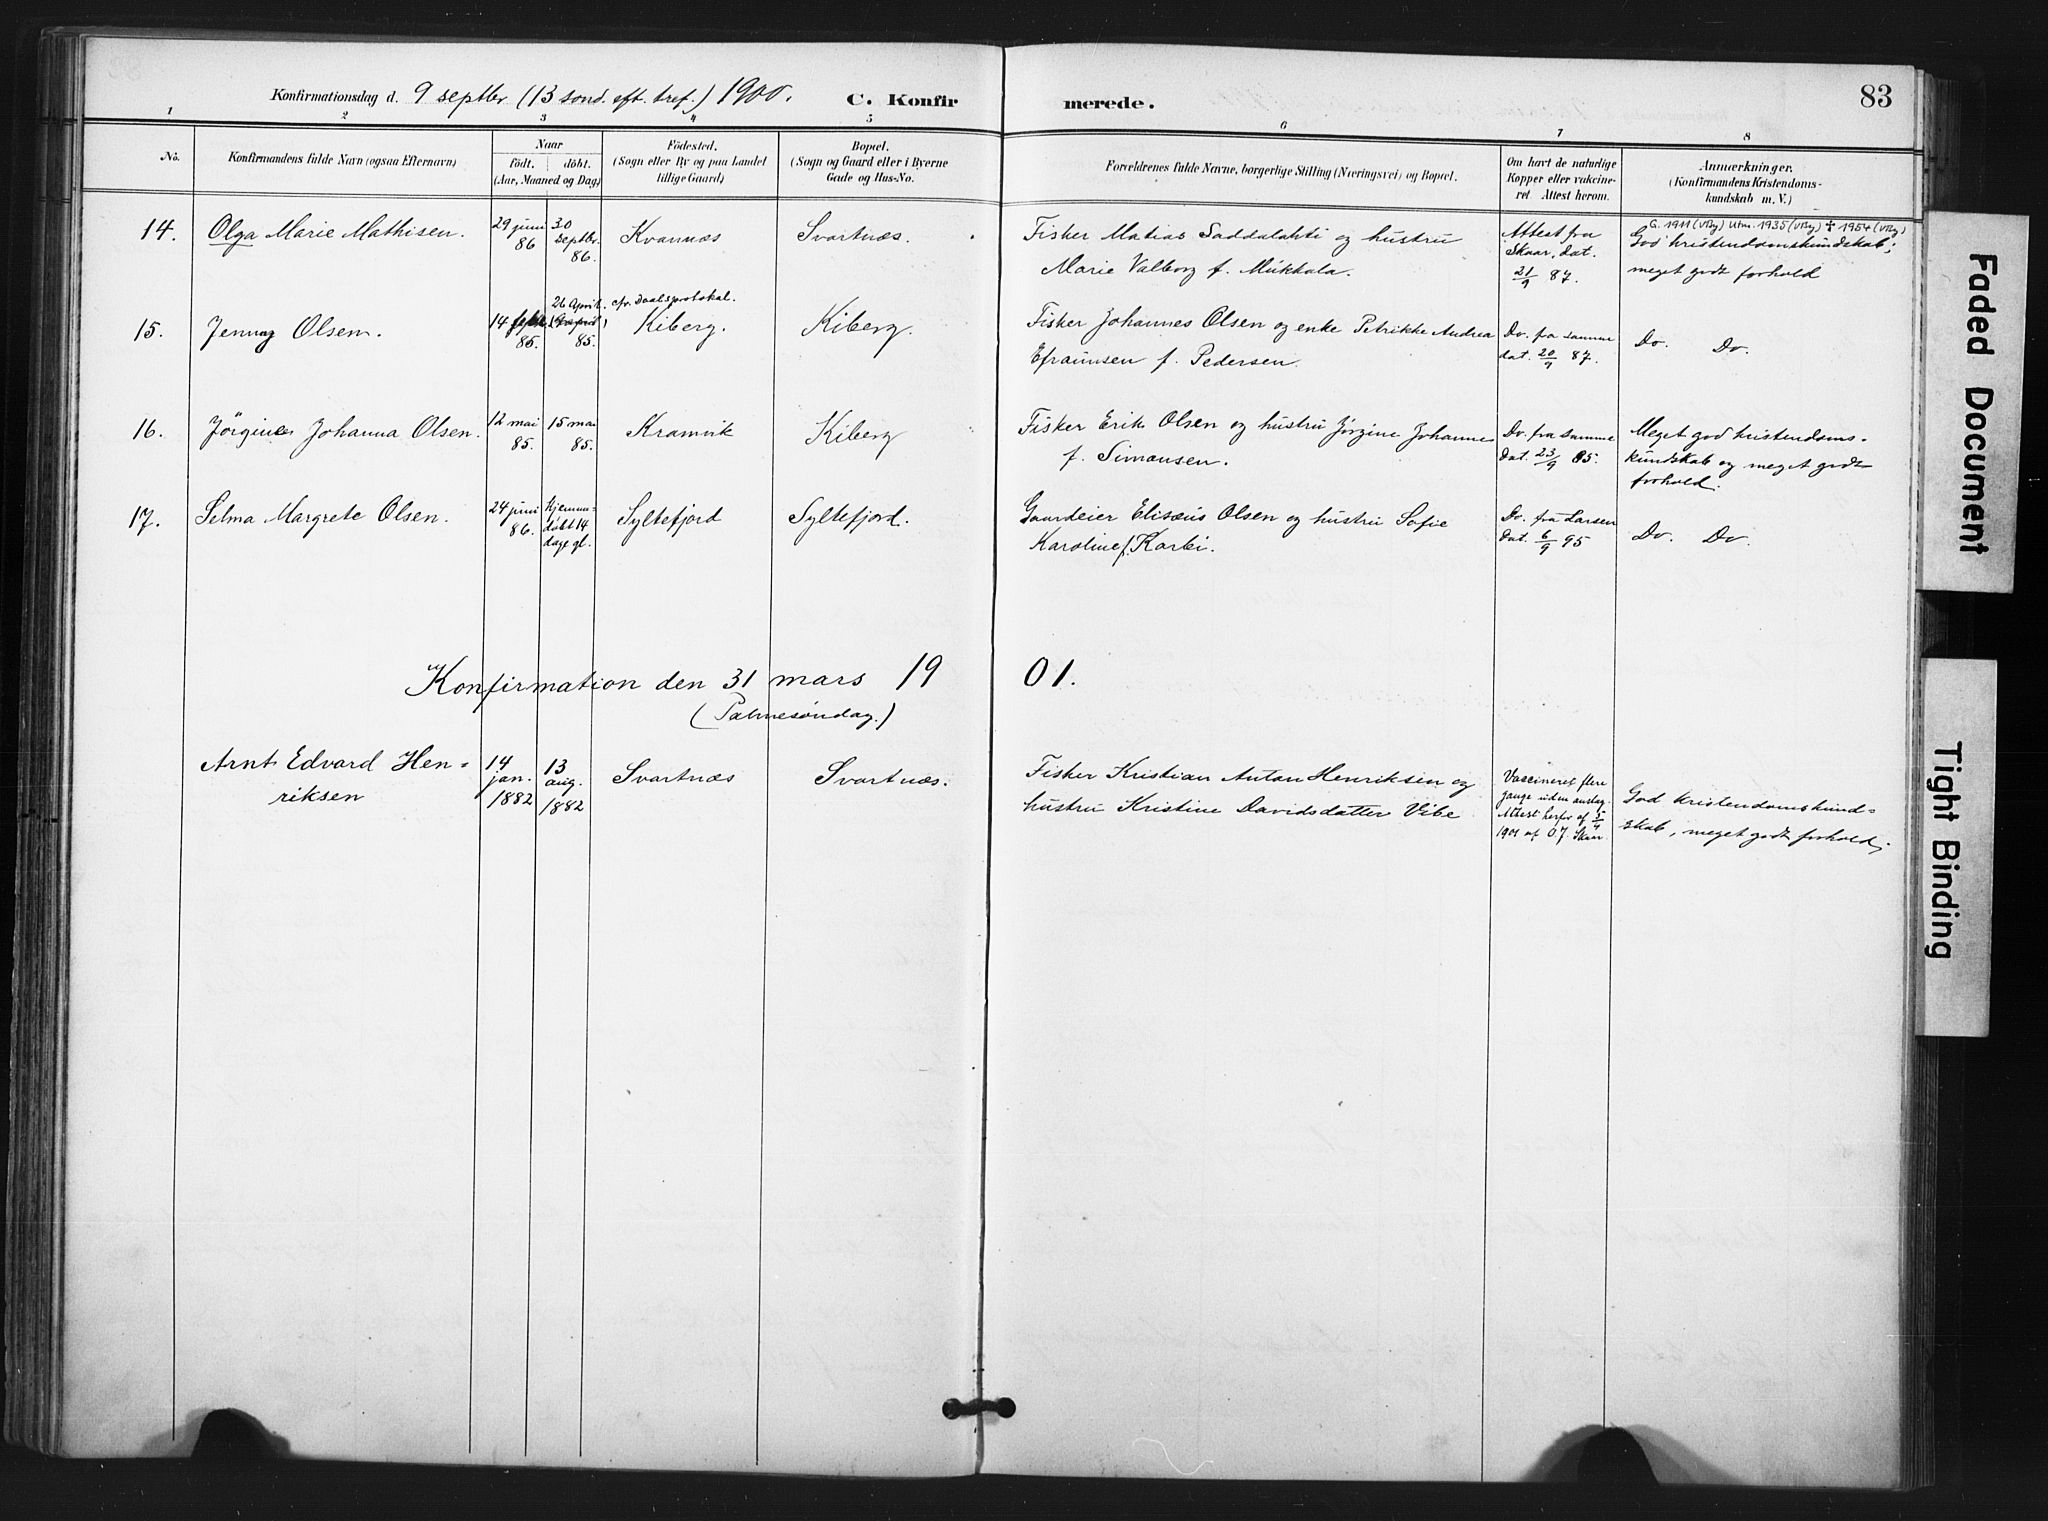 Konfirmationsdag d. 9 septbr (13 sond. eft. tref.) 1900. C. Konfir merede. 83
1 2 3 4 5 6 7 8
No.
Konfirmandens fulde Navn (ogsaa Efternavn)
Naar
födt. döbt.
(Aar, Maaned og Dag)
Födested.
(Sogn eller By og paa Landet
tillige Gaard)
Bopæl.
(Sogn og Gaard eller i Byerne
Gade og Hus-No.
Forældrenes fulde Navne, borgerlige Stilling (Næringsvei) og Bopæl.
Om havt de naturlige
Kopper eller vakcine-
ret Attest herom.
Anmærkninger.
(Konfirmandens Kristendoms-
kundskab m. V.)
14.
Olga Marie Mathisen.
29 juni
86
30
septbr.
86.
Kvannæs
Svartnæs.
Fisker Matias Saddalahti og hustru
Marie Valborg f. Mükkala.
Attest fra
Skaar, dat.
21/9 87.
G. 1911 (VBg) Utm. 1935 (VBg) ‡ 1954 (VBg)
God kristendomskundskab;
meget godt forhold
15.
Jenny Olsen.
14
85.
26 April.
85.
cfr. Daabsprotokol.
Kiberg.
Kiberg.
Fisker Johannes Olsen og enke Petrikke Andrea
Efraimsen f. Pedersen.
Do. fra samme
dat. 20/9 87.
Do. Do.
16.
Jørgine Johanna Olsen.
12 mai
85.
15 mai
85.
Kramvik
Kiberg
Fisker Erik Olsen og hustru Jørgine Johannes
f. Simonsen.
Do. fra samme
dat. 23/9 85.
Meget god kristendoms-
kundskab og meget godt
forhold.
17.
Selma Margrete Olsen.
24 juni
86.
Hjemme-
døbt 14
dage gl.
Syltefjord
Syltefjord.
Gaardeier Elisæus Olsen og hustru Sofie
Karoline f. Karbi.
Do. fra Larsen
dat. 6/9 95
Do. Do.
Konfirmation den 31 mars 19 01.
(Palmesøndag.)
Arnt Edvard Hen-
riksen
14
jan.
1882
13
aug.
1882
Svartnæs
Svartnæs.
Fisker Kristian Anton Henriksen og
hustru Kristine Davidsdatter Vibe
Vaccineret flere
gange uden anslag.
Attest herfor af 5/4
1901 af O. J. Skaar.
God kristendomskund-
skab, meget godt forhold;
Faded Document
Tight Binding